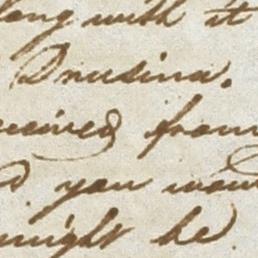 long with it
Drusina.
eceived from
d you wou
might be